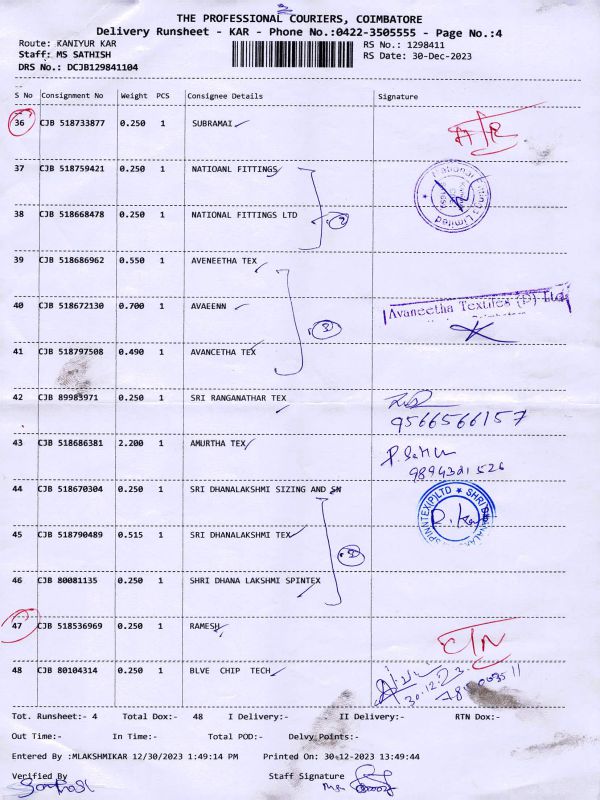 THE PROFESSIONAL COURIERS, COIMBATORE
Delivery Runsheet - KAR - Phone No.:0422-3505555 - Page No.:4
Route: KANIYUR KAR
RS No.: 1298411
Staff: MS SATHISH
RS Date: 30-Dec-2023
DRS No.: DCJB129841104
S No Consignment No Weight PCS Consignee Details Signature
36 CJB 518733877 0.250 1 SUBRAMAI
37 CJB 518759421 0.250 1 NATIOANL FITTINGS
National Fittings Limited
38 CJB 518668478 0.250 1 NATIONAL FITTINGS LTD
39 CJB 518686962 0.550 1 AVENEETHA TEX
40 CJB 518672130 0.700 1 AVAEENN
Avaneetha Textiles (P) Ltd
41 CJB 518797508 0.490 1 AVANCETHA TEX
42 CJB 89983971 0.250 1 SRI RANGANATHAR TEX
9566566157
43 CJB 518686381 2.200 1 AMURTHA TEX
9894321526
44 CJB 518670304 0.250 1 SRI DHANALAKSHMI SIZING AND SN
45 CJB 518790489 0.515 1 SRI DHANALAKSHMI TEX
46 CJB 80081135 0.250 1 SHRI DHANA LAKSHMI SPINTEX
47 CJB 518536969 0.250 1 RAMESH
48 CJB 80104314 0.250 1 BLVE CHIP TECH
30.12.23
Tot. Runsheet:- 4 Total Dox:- 48 I Delivery:- II Delivery:- RTN Dox:-
Out Time:- In Time:- Total POD:- Delvy Points:-
Entered By :MLAKSHMIKAR 12/30/2023 1:49:14 PM Printed On: 30-12-2023 13:49:44
Verified By Staff Signature